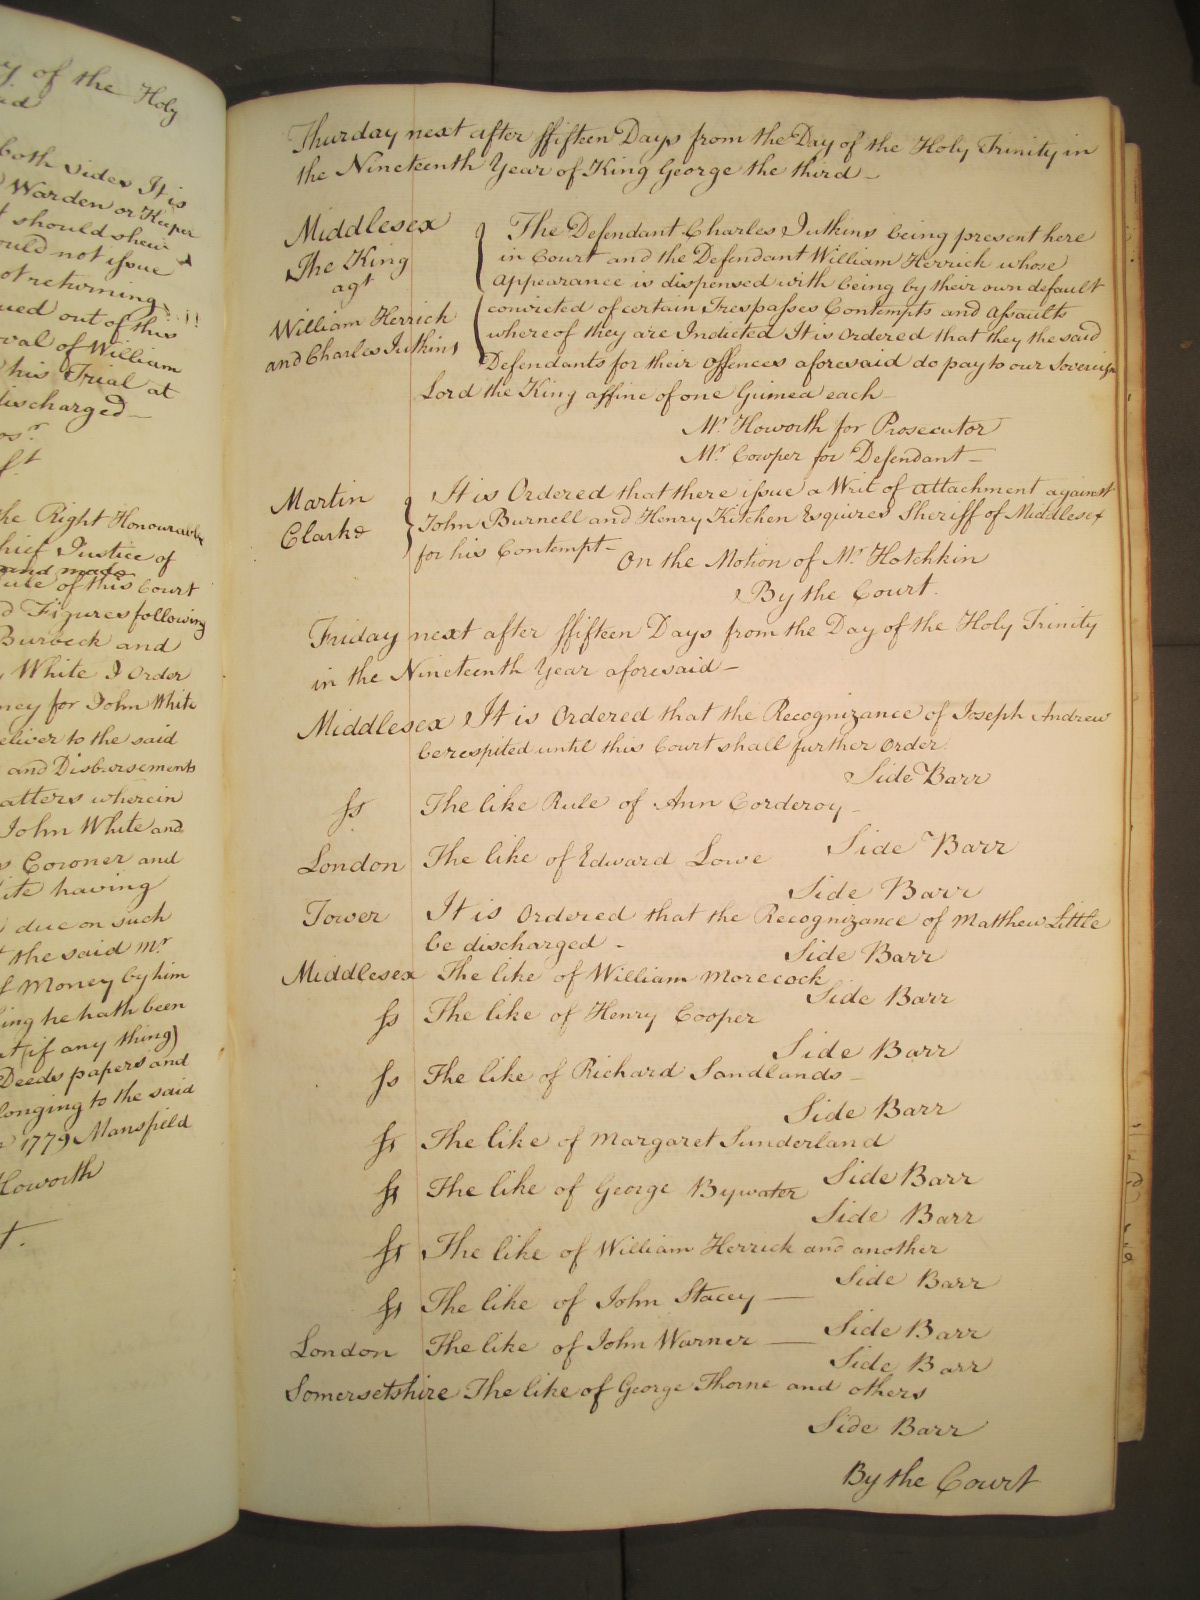 y of the Holy
both sides It is
Warden or Keeper
should shew
ould not issue
not returning
ued out of this
oval of William
his Trial at
discharged
the Right Honourable
hief Justice of
and made
Rule of this Court
d Figures following
Burbeck and
White I Order
ney for John White
eliver to the said
and Disbursements
atters wherein
John White and
s Coroner and
ite having
due on such
the said Mr
f Money by him
ing he hath been
at (if any thing)
Deeds papers and
longing to the said
1779 Mansfield
Howorth
Thursday next after ffifteen Days from the Day of the Holy Trinity in
the Nineteenth Year of King George the third
Middlesex
The King
agt
William Herrick
and Charles Jutkins
The Defendant Charles Jutkins being present here
in Court and the Defendant William Herrick whose
Appearance is dispensed with being by their own default
convicted of certain Trespasses Contempts and Assaults
whereof they are Indicted It is Ordered that they the said
Defendants for their Offences aforesaid do pay to our Sovereign
Lord the King affine of one Guinea each
Mr Howorth for Prosecutor
Mr Cowper for Defendant
Martin
Clarke
It is Ordered that there issue a Writ of attachment against
John Burnell and Henry Kitchen Esquires Sheriff of Middlesex
for his Contempt
On the Motion of Mr Hotchkin
By the Court.
Friday next after ffifteen Days from the Day of the Holy Trinity
in the Nineteenth Year aforesaid
Middlesex It is Ordered that the Recognizance of Joseph Andrew
be respited until this Court shall further Order
Side Barr
ss The like Rule of Ann Corderoy
Side Barr
London The like of Edward Lowe
Side Barr
Tower It is Ordered that the Recognizance of Matthew Little
be discharged
Side Barr
Middlesex The like of William Morecock
Side Barr
ss The like of Henry Cooper
Side Barr
ss The like of Richard Sandlands
Side Barr
ss The like of Margaret Sunderland
Side Barr
ss The like of George Bywater
Side Barr
ss The like of William Herrick and another
Side Barr
ss The like of John Stacey
Side Barr
London The like of John Warner
Side Barr
Somersetshire The like of George Thorne and others
Side Barr
By the Court